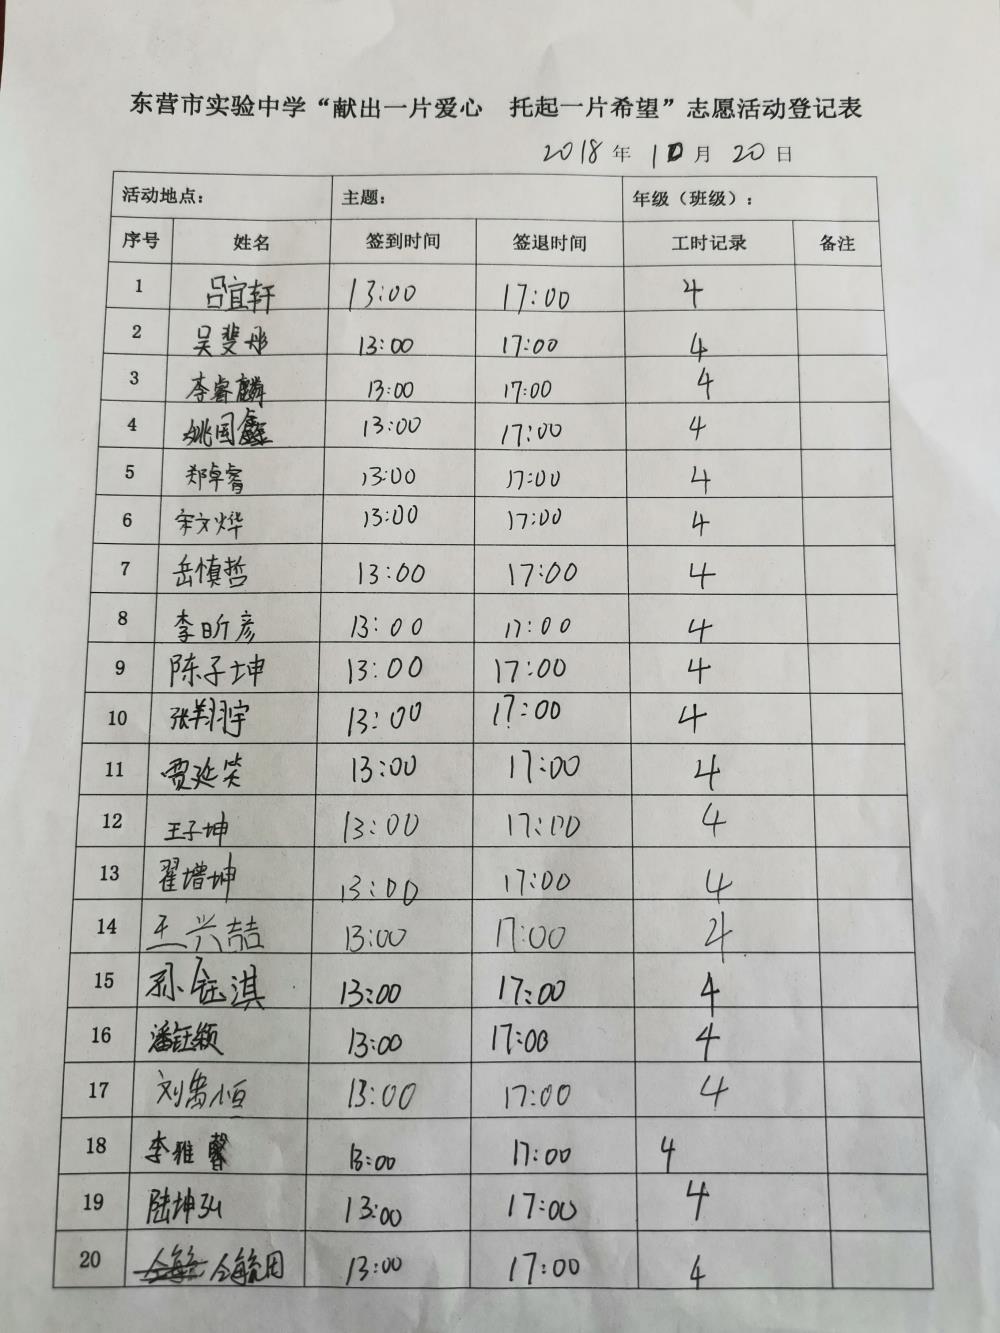 东营市实验中学“献出一片爱心 托起一片希望”志愿活动登记表
2018年 10月 20日
活动地点: 主题: 年级（班级）:
序号 姓名 签到时间 签退时间 工时记录 备注
1 吕宜轩 13:00 17:00 4
2 吴斐彤 13:00 17:00 4
3 李睿麟 13:00 17:00 4
4 姚国鑫 13:00 17:00 4
5 郑卓睿 13:00 17:00 4
6 宋文烨 13:00 17:00 4
7 岳慎哲 13:00 17:00 4
8 李昕彦 13:00 17:00 4
9 陈子坤 13:00 17:00 4
10 张翔宇 13:00 17:00 4
11 贾延笑 13:00 17:00 4
12 王子坤 13:00 17:00 4
13 翟增坤 13:00 17:00 4
14 王兴喆 13:00 17:00 4
15 孙钰淇 13:00 17:00 4
16 潘钰颖 13:00 17:00 4
17 刘 恒 13:00 17:00 4
18 李雅馨 13:00 17:00 4
19 陆坤弘 13:00 17:00 4
20 13:00 17:00 4